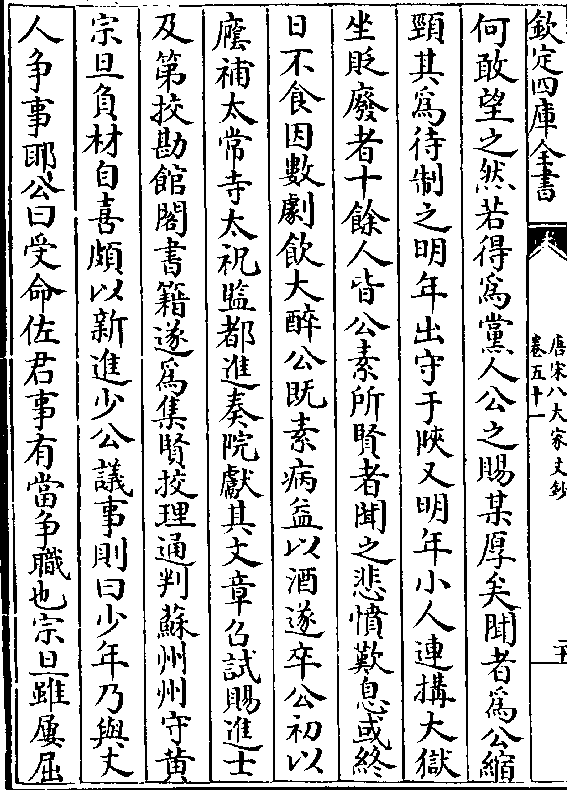 欽定四庫全書
唐宋八大家文鈔
卷五十一
二十
何敢望之然若得爲黨人公之賜某厚矣聞者爲公縮
頸其爲待制之明年出守于陜又明年小人連搆大獄
坐貶廢者十餘人皆公素所賢者聞之悲憤歎息或終
日不食因數劇飲大醉公既素病益以酒遂卒公初以
廕補太常寺太祝監都進奏院獻其文章召試賜進士
及第挍勘館閣書籍遂爲集賢挍理通判蘇州州守黄
宗旦負材自喜頗以新進少公議事則曰少年乃與丈
人争事耶公曰受命佐君事有當争職也宗旦雖屢屈